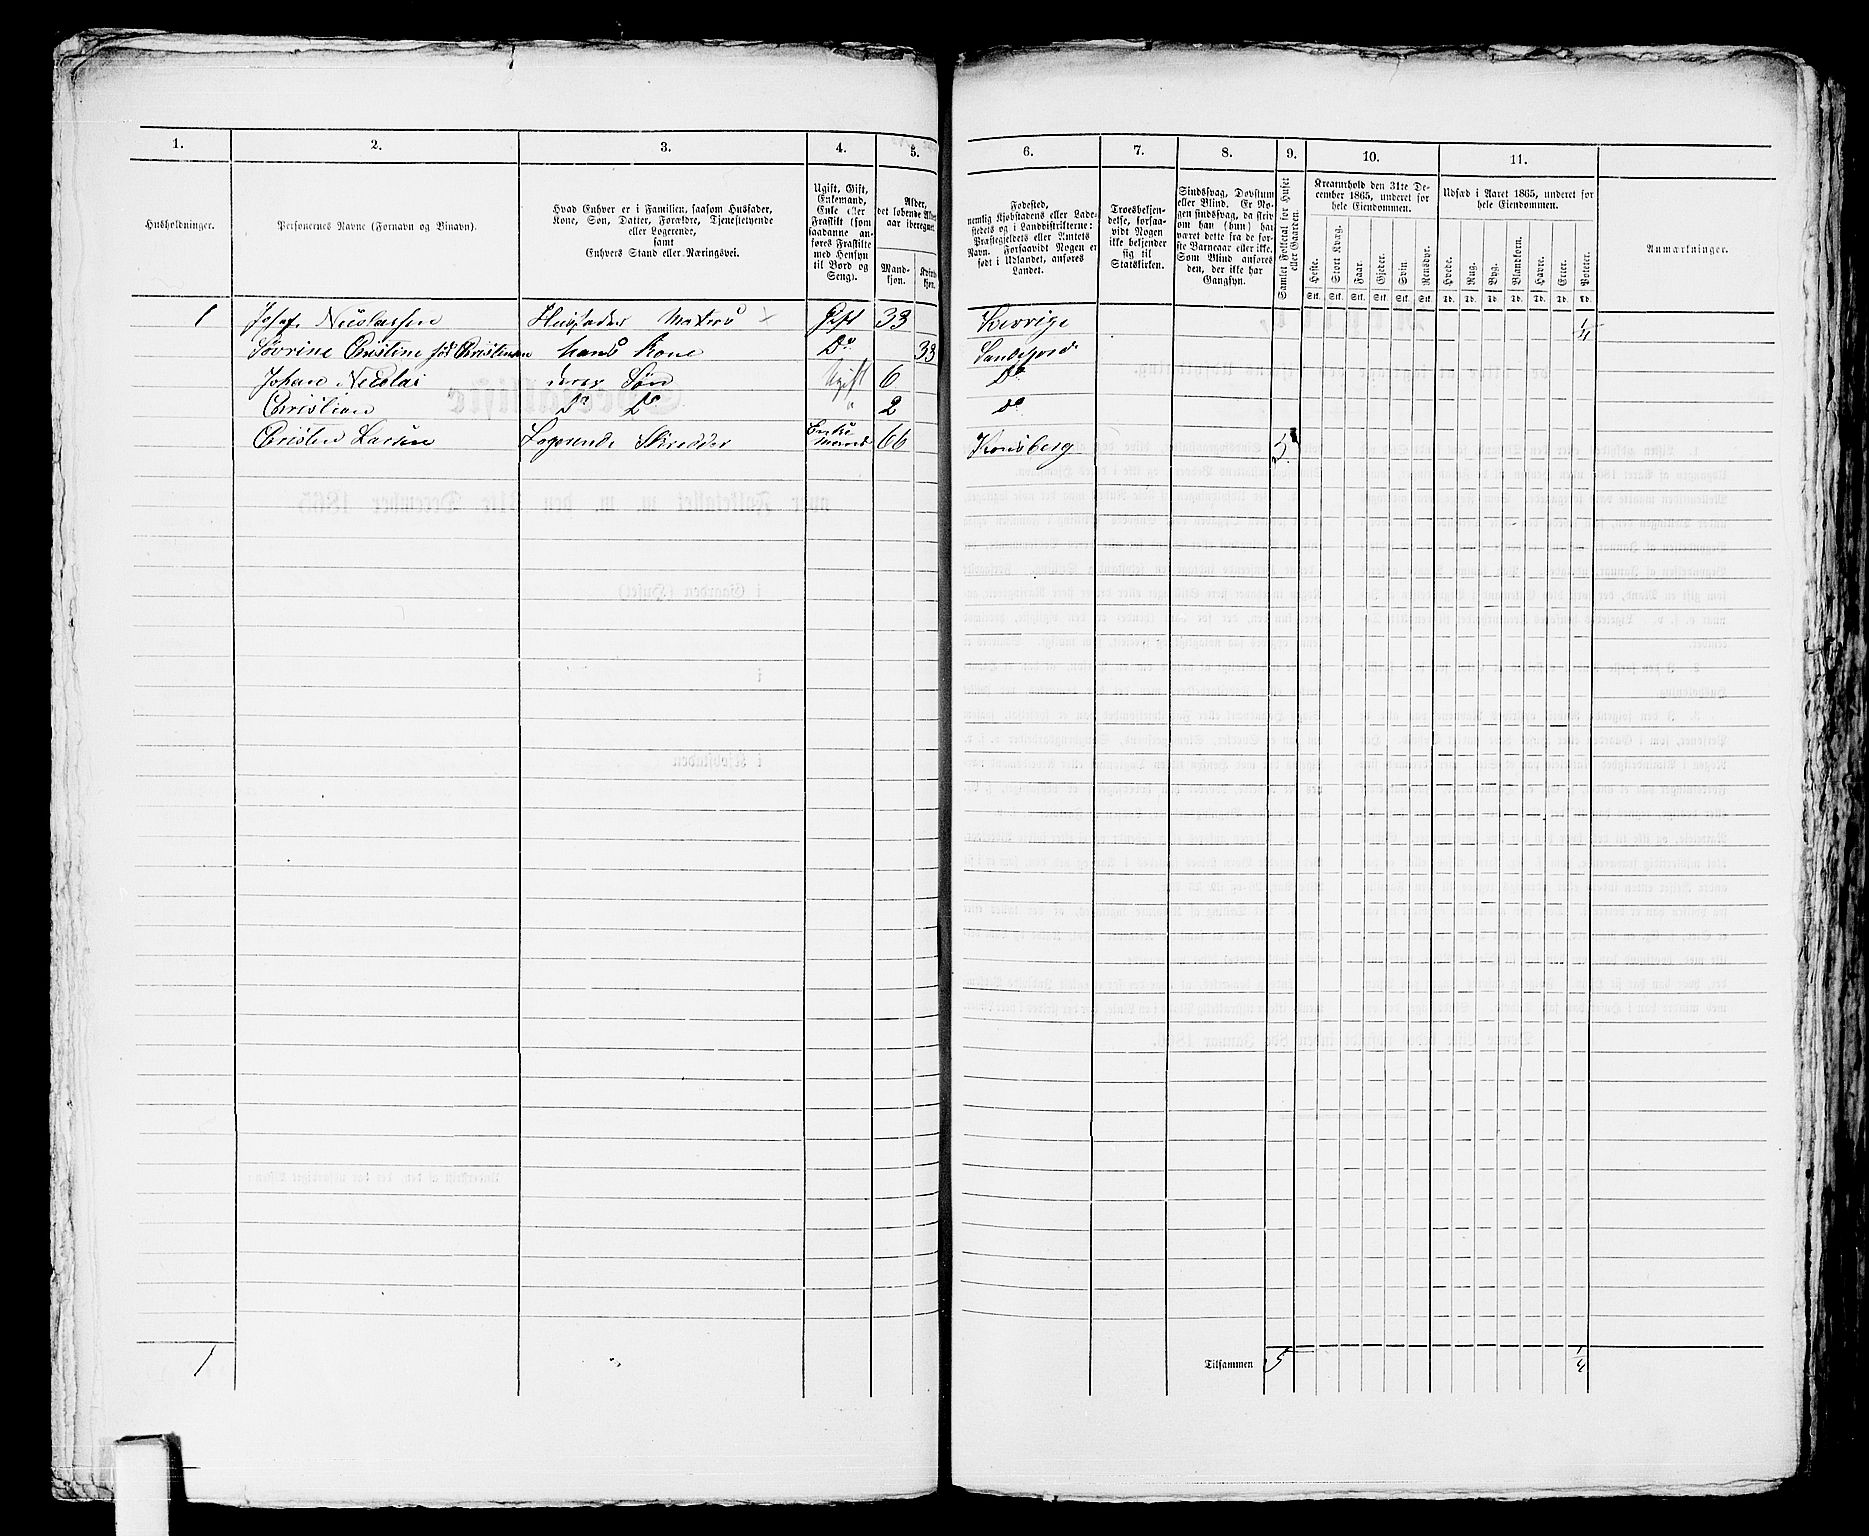 1. 2. 3. 4. 5. 6. 7. 8. 9. 10. 11.
Husholdninger.
Personernes Navne (Fornavn og Binavn).
Hvad Enhver er i Familien, saasom Husfader,
Kone, Søn, Datter, Forældre, Tjenestetyende
eller Logerende,
samt
Enhvers Stand eller Næringsvei.
Ugift, Gift,
Enkemand,
Enke eller
Fraskilt (som
saadanne an-
føres Fraskilte
med Hensyn
til Bord og
Seng).
Alder,
det løbende Alders-
aar iberegnet.
Mand-
kjøn.
Kvinde-
kjøn.
Fødested,
nemlig Kjøbstadens eller Lade-
stedets og i Landdistrikterne:
Præstegjeldets eller Amtets
Navn. Forsaavidt Nogen er
født i Udlandet, anføres
Landet.
Troesbekjen-
delse, forsaa-
vidt Nogen
ikke bekjender
sig til
Statskirken.
Sindssvag, Døvstum
eller Blind. Er No-
gen sindssvag, da skriv
om han (hun) har
været dette fra de før-
ste Barneaar eller ikke.
Som Blind anføres
den, der ikke har
Gangsyn.
Samlet Folketal for Huset
eller Gaarden.
Kreaturhold den 31te De-
cember 1865, underet for
hele Eiendommen.
Heste. Stort Kvæg. Faar. Gjeder. Svin. Rensdyr.
Stk. Stk. Stk. Stk. Stk. Stk.
Udsæd i Aaret 1865, underet for
hele Eiendommen.
Hvede. Rug. Byg. Blandkorn. Havre. Erter. Poteter.
Td. Td. Td. Td. Td. Td. Td.
Anmærkninger.
1 Josef Nicolassen Husfader Matros x Gift 33 1/4
Søvrine Christine fød Christensen hans Kone Do 33 Sandefjord
Johan Nicolai deres Søn Ugift 6 Do
Christian Do Do " 2 Do
Christen Larsen Logerende Skredder Enke
mand 66 Konsberg 5
1 Tilsammen 5 1/4